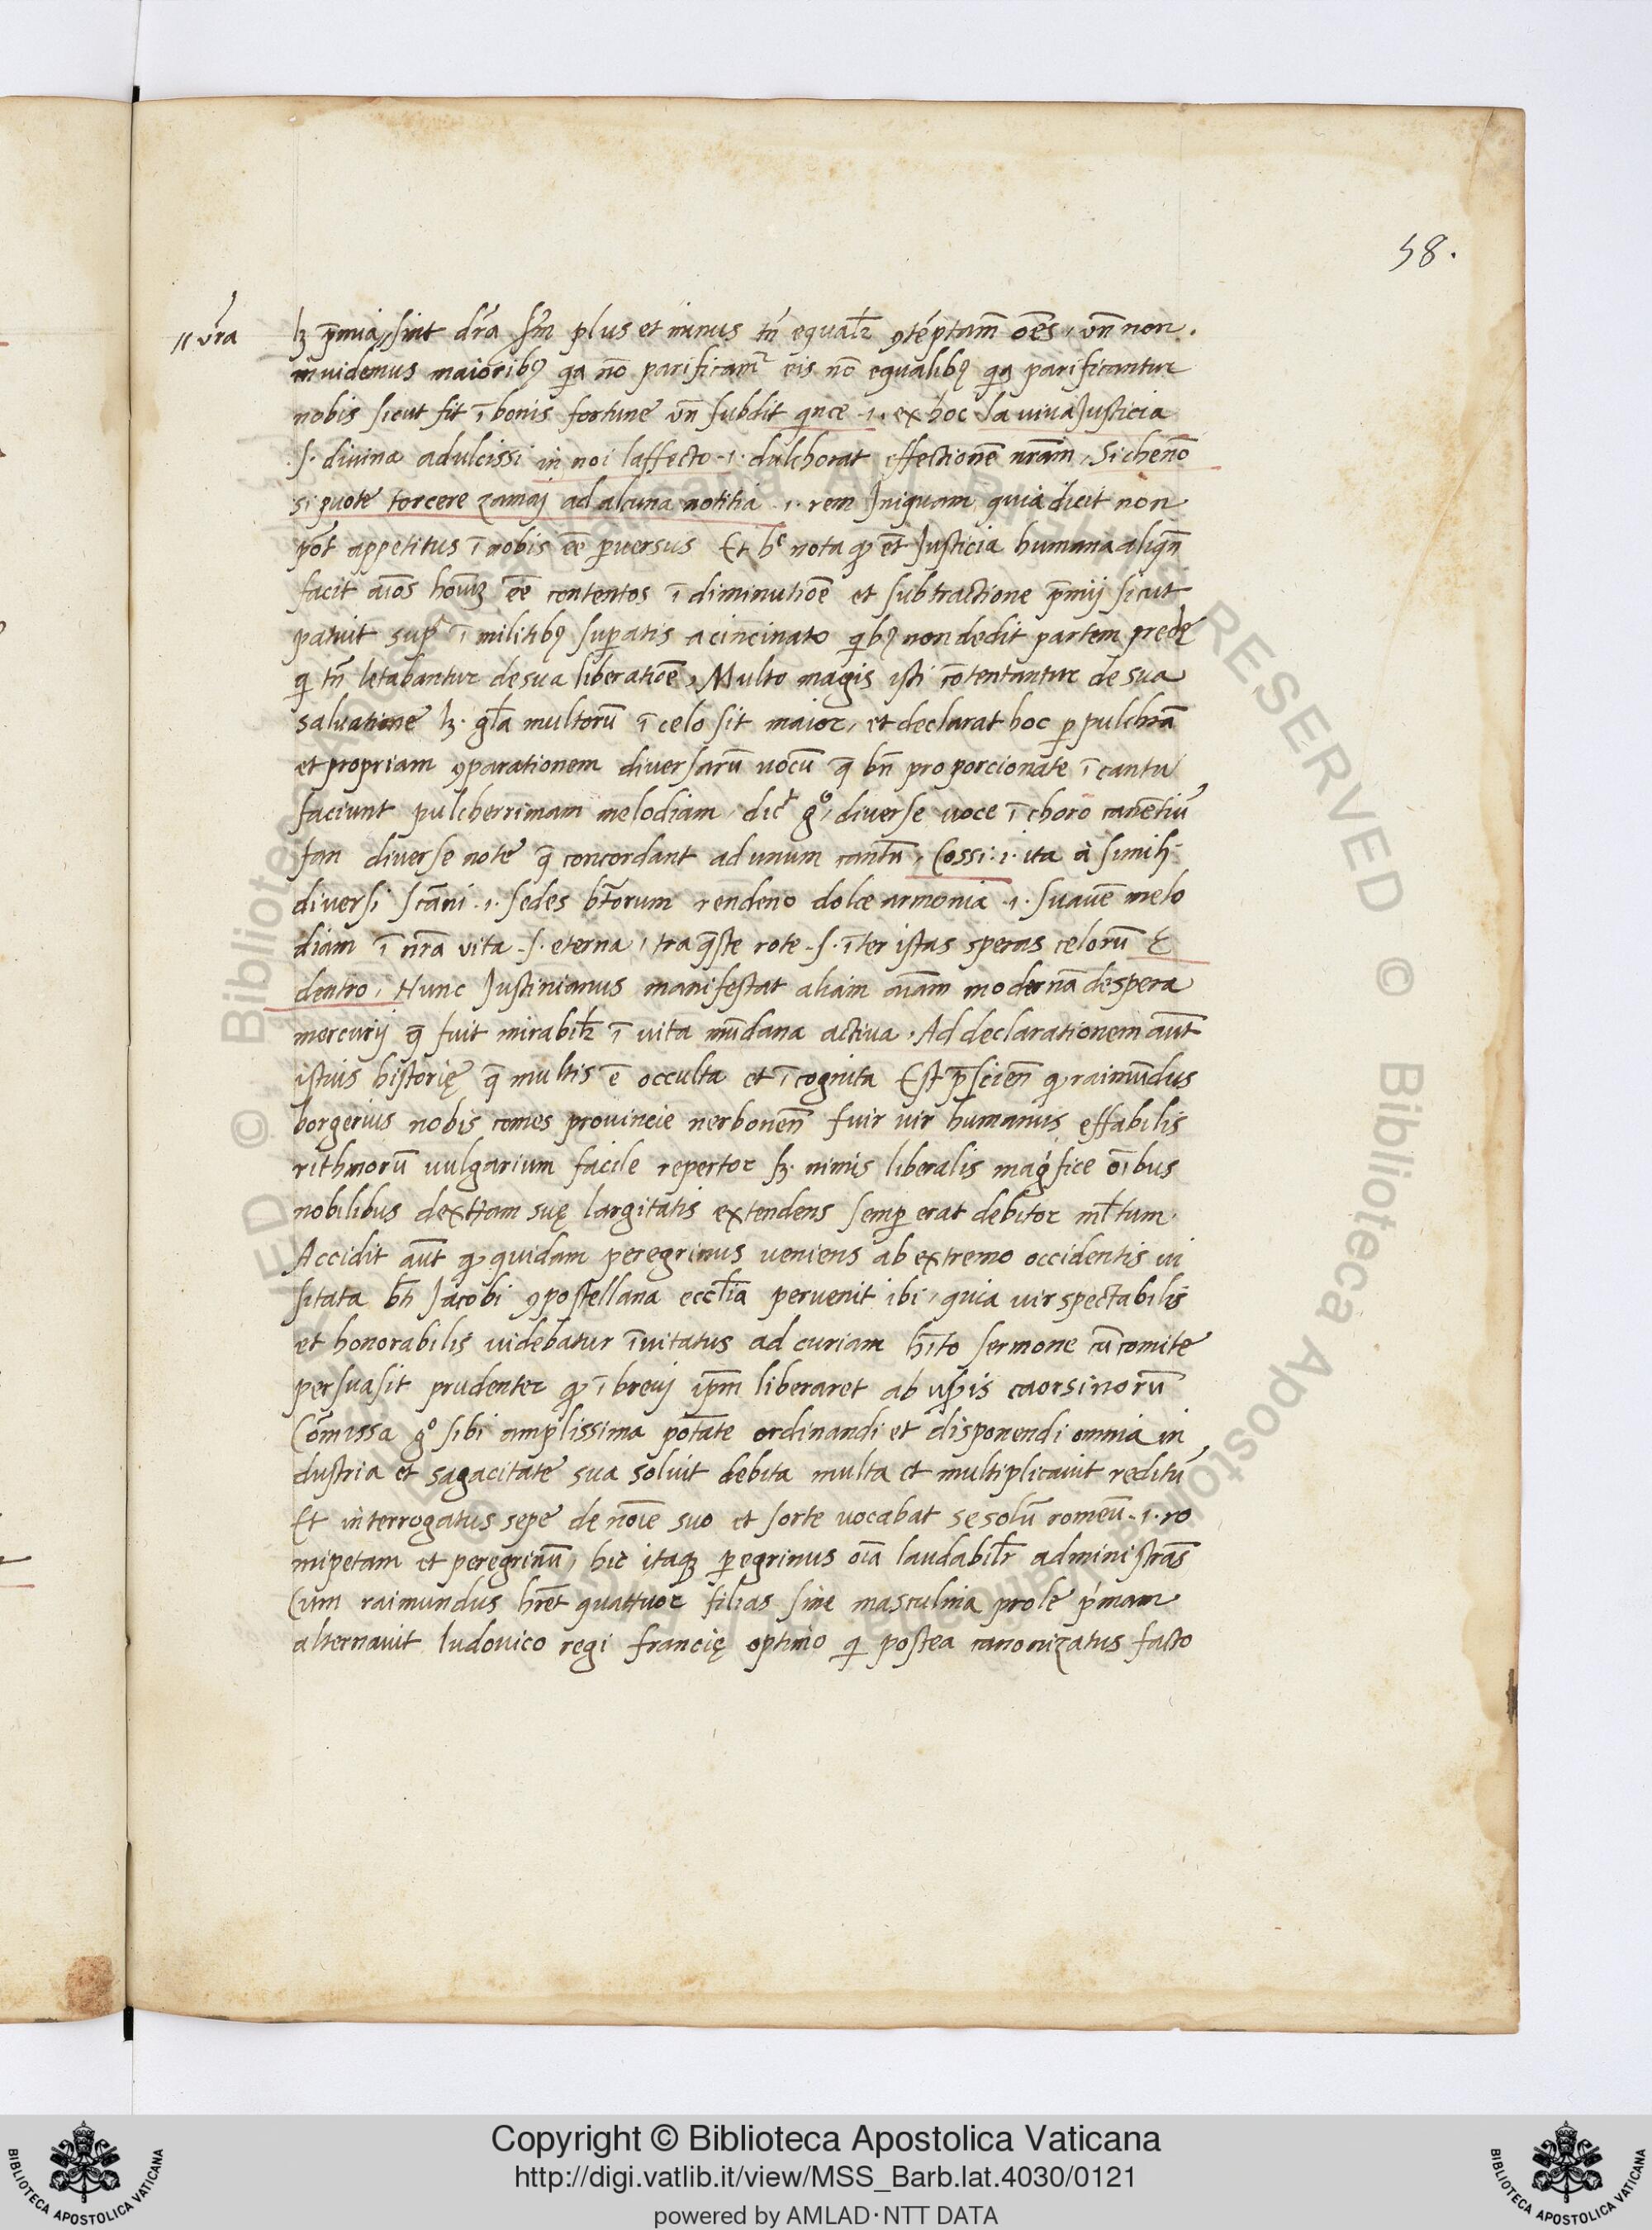 58.
"vr̃a
lꝫ p̄mia "sint dr̃a sm̃ plus et minus tñ equalr̃ ꝯtẽptam̃ oẽs, vñ non.
inuidemus maioribꝰ qa nõ parificamr̃ eis nõ equalibꝰ qa parificantur
nobis sicut fit ĩ bonis fortune vñ subdit qnce .i. ex hoc la viua Justicia
.s. divina adulcissi in noi laffecto .i. dulchorat effectionẽ nr̃am, Si che nõ
si puote torcere zamaj ad alcuna notitia .i. rem Iniquam quia dicit non
põt appetitus ĩ nobis eẽ ꝑversus Et hc nota ꝙ et̃ Justicia humana aliqñ
facit aiõs hoĩuꝫ eẽ contentos ĩ diminutiõe et subtractione p̄mij sicut
patuit supra ĩ militibꝰ suꝑatis a cincinato qbꝰ non dedit partem prede
q tñ letabantur de sua liberatiõe, Multo magis isti cõtentantur de sua
salvatione lꝫ. gl̃a multorũ ĩ celo sit maior, et declarat hoc ꝑ pulchrã
et propriam ꝯparationem diversarũ vocũ q̃ bñ proporcionate ĩ cantu
faciunt pulcherrimam melodiam, dict go, diverse voce ĩ choro canẽtiũ
fan diverse note q̃ concordant ad unum cantũ, Cossi .i. ita a simili
diversi scãni .i. sedes bt̃orum rendeno dolce armonia .i. suavẽ melo
diam ĩ nr̃a vita .s. eterna, tra q̃ste rote .s. ĩter istas speras celorũ E
dentro, Hunc Justinianus manifestat aliam aĩam modernã de spera
mercurij q̃ fuit mirabilr̃ ĩ vita mũdana activa. Ad declarationem aut̃
istius historię q̃ multis ẽ occulta et ĩcognita Est p̄scien̄ ꝙ raimũdus
borgerius nobis comes provincie nerbonen̄ fuir vir humanus effabilis
rithmorũ vulgarium facile repertor sꝫ. nimis liberalis magĩfice oĩbus
nobilibus dextram suę largitatis extendens semꝑ erat debitor ml̃tum.
Accidit aut̃ ꝙ quidam peregrinus veniens ab extremo occidentis vi
sitata bt̃i Jacobi ꝯpostellana eccl̃ia pervenit ibi, quia vir spectabilis
et honorabilis videbatur ĩvitatus ad curiam hĩto sermone cũ comite
persuasit prudenter ꝙ ĩ brevj ipm̃ liberaret ab usꝑis caorsinorũ
Cõmissa go sibi amplissima potãte ordinandi et disponendi omnia in
dustria et sagacitate sua soluit debita multa et multiplicauit reditũ
Et interrogatus sepe de noĩe suo et sorte vocabat se solũ romeũ .i. ro
mipetam et peregrinũ, hic itaqꝫ ꝑegrinus oĩa laudabilr̃ administrãs
Cum raimundus hr̃et quattuor filias sine masculina prole pimam
alternavit ludovico regi francię optimo q postea canonizatus facto
Copyright © Biblioteca Apostolica Vaticana
http://digi.vatlib.it/view/MSS_Barb.lat.4030/0121
powered by AMLAD·NTT DATA